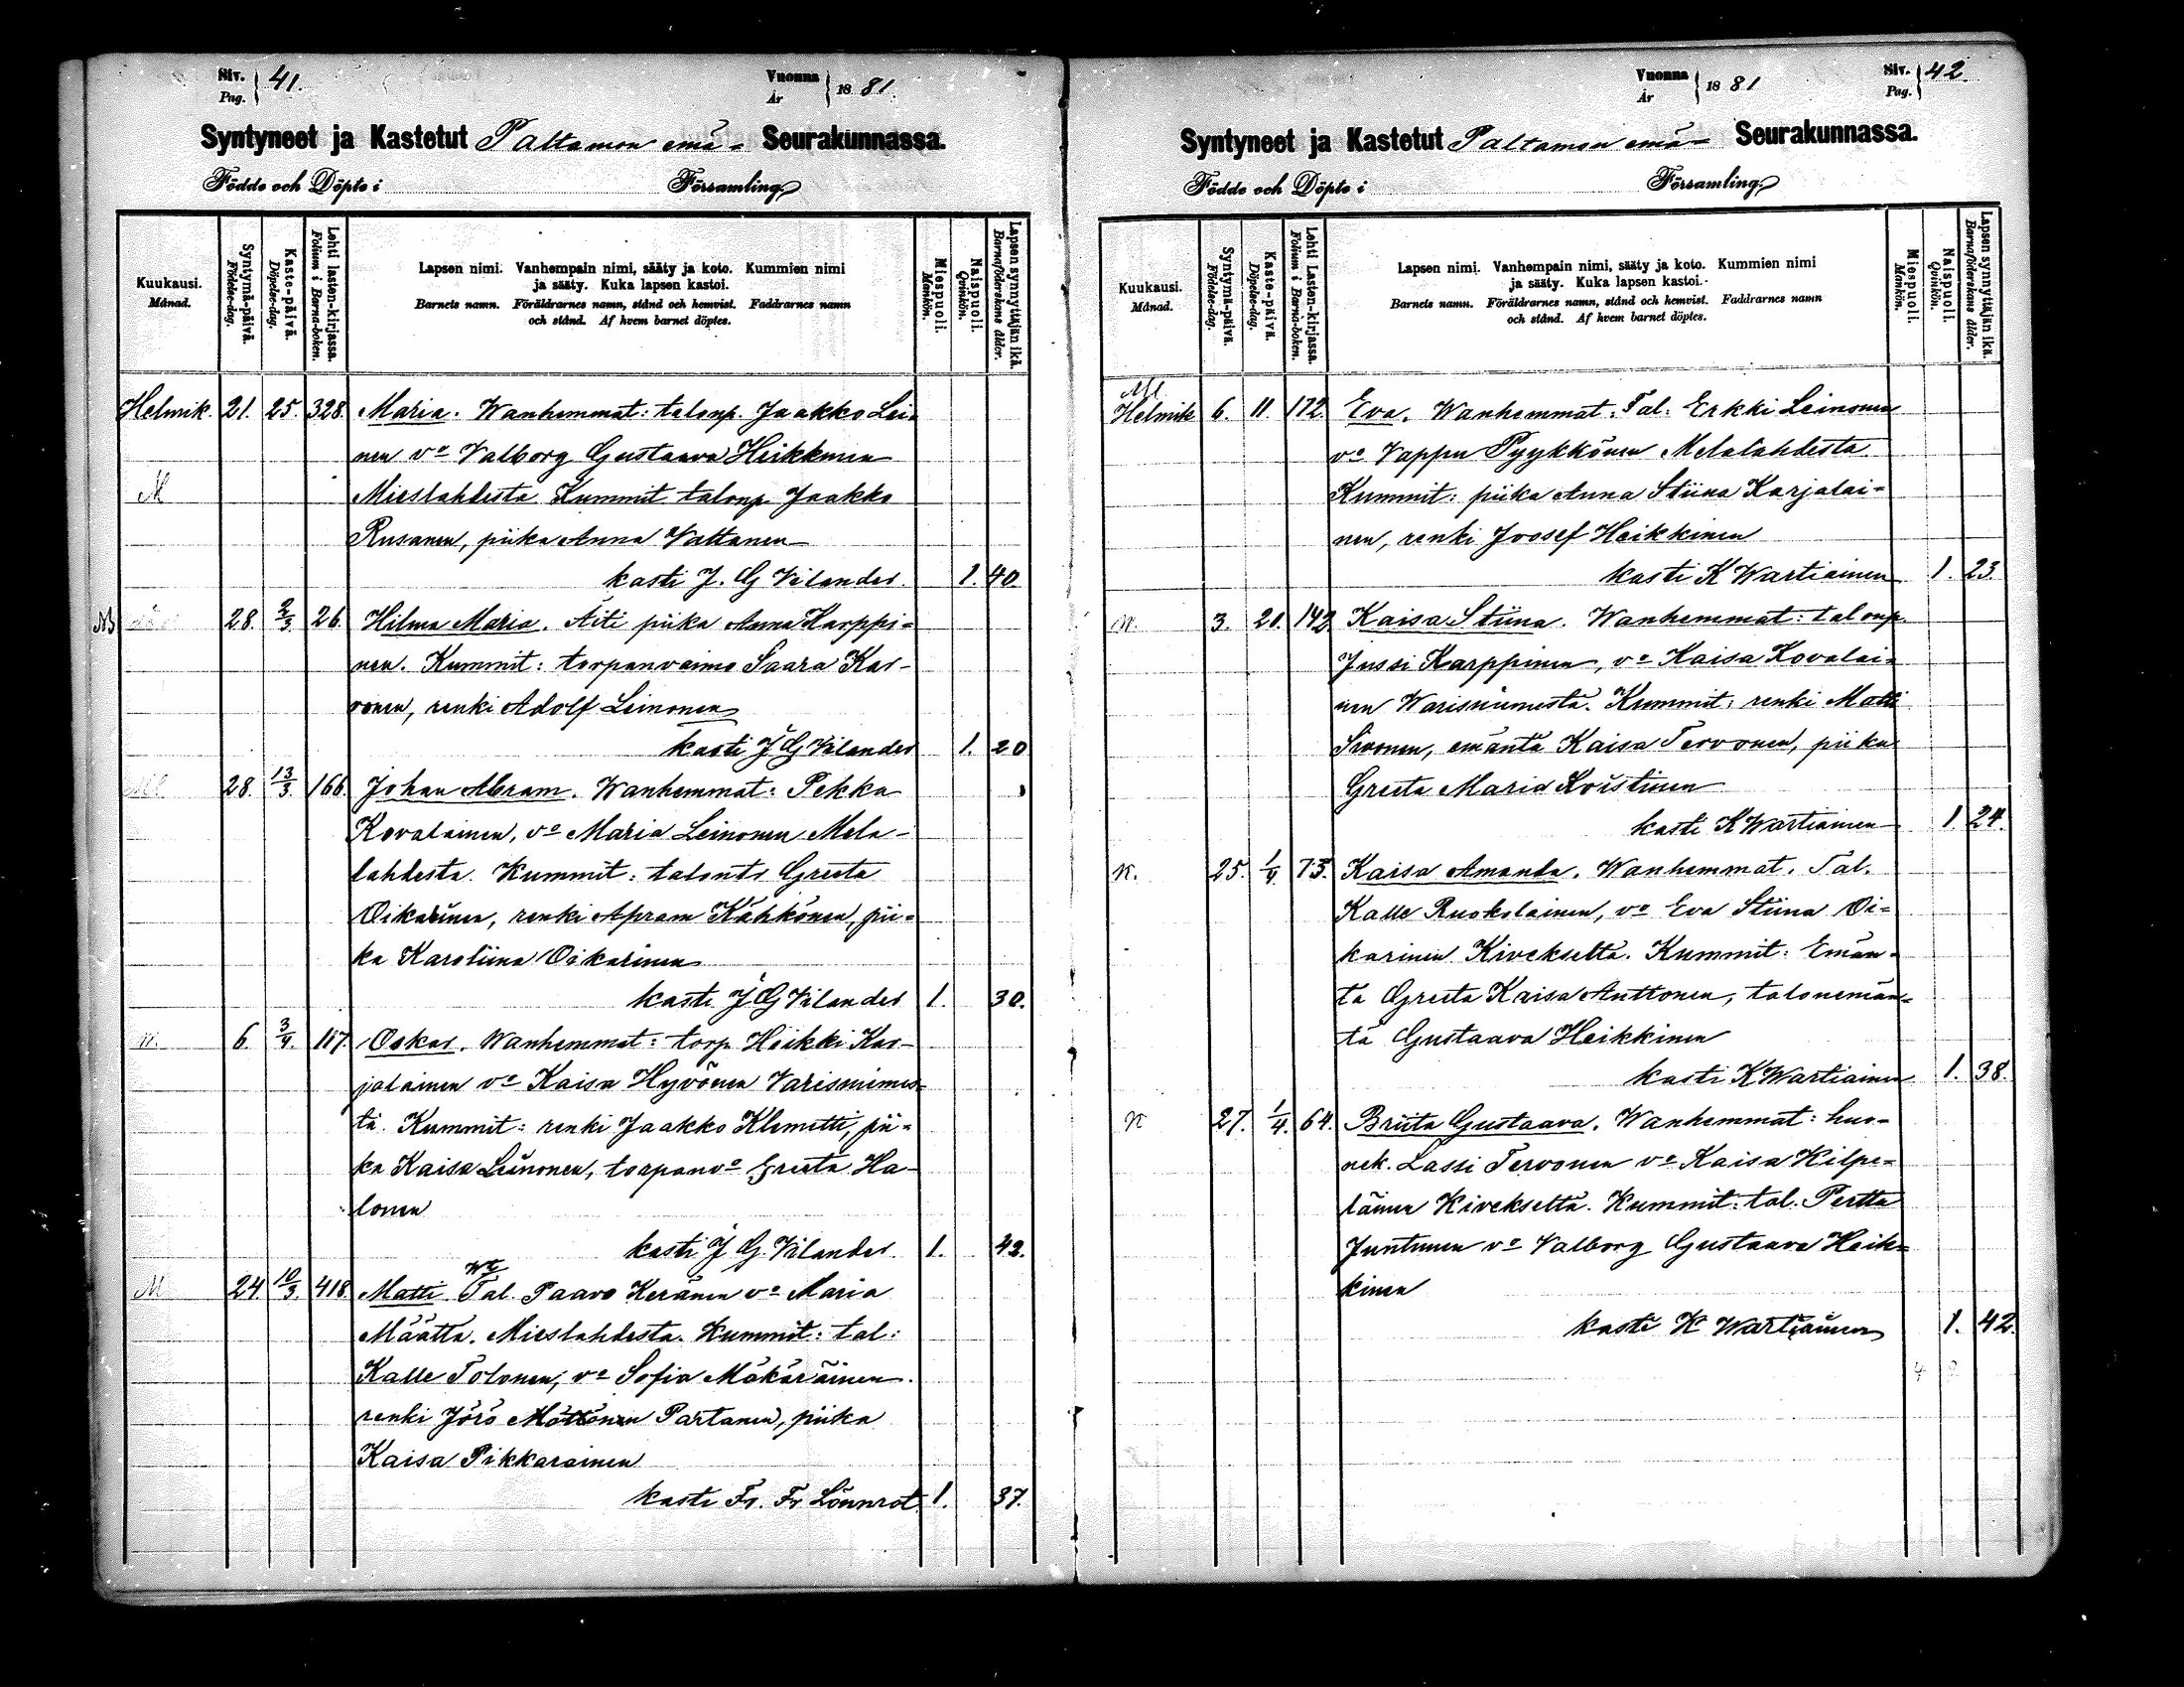 Siv. 41. Vuonna 1881.
Pag. År
Syntyneet ja Kastetut Paltamon emä- Seurakunnassa.
Födde och Döpte i Församling
Kuukausi. Månad.
Syntymä-päivä. Födelse-dag.
Kaste-päivä. Döpelse-dag.
Lehti lasten-kirjassa. Folium i Barna-boken.
Lapsen nimi. Vanhempain nimi, sääty ja koto. Kummien nimi
ja sääty. Kuka lapsen kastoi.
Barnets namn. Föräldrarnes namn, stånd och hemvist. Faddrarnes namn
och stånd. Af hvem barnet döptes.
Miespuoli. Mankön.
Naispuoli. Qvinkön.
Lapsen synnyttäjän ikä. Barnaföderskans ålder.
Helmik. 21. 25. 328. Maria. Wanhemmat: talonp. Jaakko Lei-
nen vo Valborg Gustaava Heikkinen
M Mieslahdesta Kummit talonp. Jaakko
Rusanen, piika Anna Vattanen
kasti J. G Vilander. 1. 40.
28. 2/3. 26. Hilma Maria. Äiti piika Anna Karppi-
nen. Kummit: torpanvaimo Saara Kar-
vonen, renki Adolf Leinonen
kasti J G Vilander 1. 20
28. 13/3. 166. Johan Abram. Wanhemmat: Pekka
Kovalainen, vo Maria Leinonen Mela-
lahdesta. Kummit: talonts Greeta
Oikarinen, renki Apram Kähkönen, pii-
ka Karoliina Oikarinen
kasti J G Vilander 1. 30.
6. 3/4. 117. Oskar. Wanhemmat: torp Heikki Kar-
jalainen vo Kaisa Hyvönen Varisnimes-
tä. Kummit: renki Jaakko Klemetti, pii-
ka Kaisa Leinonen, torpanvo Greeta Ha-
lonen
kasti J G. Vilander. 1. 42.
M 24. 10/3. 418. Matti Tal. Paavo Keränen vo Maria
Määttä. Mieslahdesta. Kummit: tal:
Kalle Tolonen, vo Sofia Mökäräinen.
renki Jörö Möttönen Partanen, piika
Kaisa Pikkarainen
kasti Fr. Fr Lönnrot. 1. 37.
Vuonna 1881 Siv. 42.
År Pag.
Syntyneet ja Kastetut Paltamon emä- Seurakunnassa.
Födde och Döpte i Församling
Kuukausi. Månad.
Syntymä-päivä. Födelse-dag.
Kaste-päivä. Döpelse-dag.
Lehti Lasten-kirjassa. Folium i Barna-boken.
Lapsen nimi. Vanhempain nimi, sääty ja koto. Kummien nimi
ja sääty. Kuka lapsen kastoi.
Barnets namn. Föräldrarnes namn, stånd och hemvist. Faddrarnes namn
och stånd. Af hvem barnet döptes.
Miespuoli. Mankön.
Naispuoli. Qvinkön.
Lapsen synnyttäjän ikä. Barnaföderskans ålder.
Ml
Helmik 6. 11. 172. Eva. Wanhemmat: Tal: Erkki Leinonen
vo Vappu Pyykkönen Melalahdesta
Kummit: piika Anna Stiina Karjalai-
nen, renki Joosef Heikkinen
kasti K Wartiainen 1. 23.
3. 20. 142. Kaisa Stiina. Wanhemmat: talonp.
Jussi Karppinen, vo Kaisa Kovalai-
nen Warisnimestä. Kummit: renki Matti
Sivonen, emäntä Kaisa Tervonen, piika
Greeta Maria Koistinen
kasti K Wartiainen 1. 24.
K. 25. 1/4. 73. Kaisa Amanda. Wanhemmat. Tal.
Kalle Ruokolainen, vo Eva Stiina Oi-
karinen Kivekseltä. Kummit: Emän-
tä Greeta Kaisa Anttonen, talonemän-
tä Gustaava Heikkinen
kasti K Wartiainen 1. 38.
K 27. 1/4. 64. Briita Gustaava. Wanhemmat: huo-
nek. Lassi Tervonen vo Kaisa Kilpe-
läinen Kivekseltä. Kummit: tal. Pertta
Juntunen vo Valborg Gustaava Heik-
kinen
kasti K Wartiainen 1. 42.